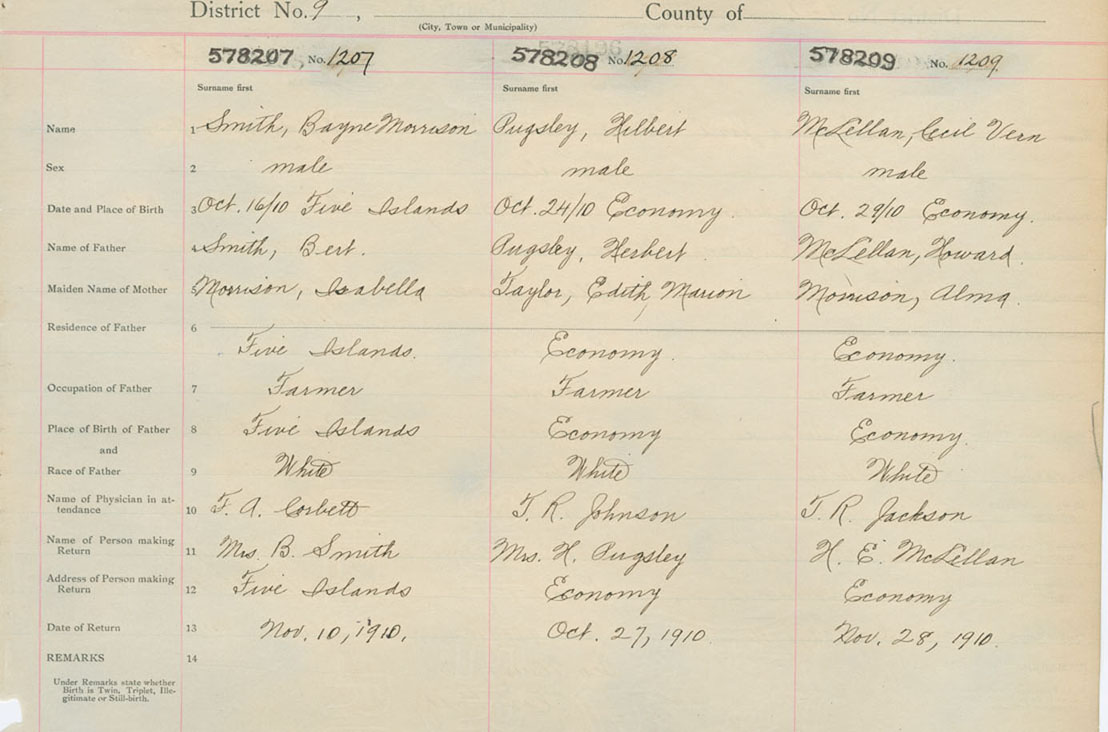 District No. 9 , County of
(City, Town or Municipality)
578207 No. 1207 578208 No. 1208 578209 No. 1209
Surname first Surname first Surname first
Name 1 Smith, Bayne Morrison Pugsley, Hilbert McLellan, Cecil Vern
Sex 2 male male male
Date and Place of Birth 3 Oct. 16/10 Five Islands Oct. 24/10 Economy. Oct. 29/10 Economy.
Name of Father 4 Smith, Bert. Pugsley, Herbert McLellan, Howard.
Maiden Name of Mother 5 Morrison, Isabella Taylor, Edith Marion Morrison, Alma.
Residence of Father 6
Five Islands. Economy. Economy.
Occupation of Father 7 Farmer Farmer Farmer
Place of Birth of Father 8 Five Islands Economy Economy.
and
Race of Father 9 White White White
Name of Physician in at-
tendance 10 F. A. Corbett T. R. Johnson T. R. Jackson
Name of Person making
Return 11 Mrs. B. Smith Mrs. H. Pugsley H. E. McLellan
Address of Person making
Return 12 Five Islands Economy Economy
Date of Return 13 Nov. 10, 1910. Oct. 27, 1910. Nov. 28, 1910.
REMARKS 14
Under Remarks state whether
Birth is Twin, Triplet, Ille-
gitimate or Still-birth.